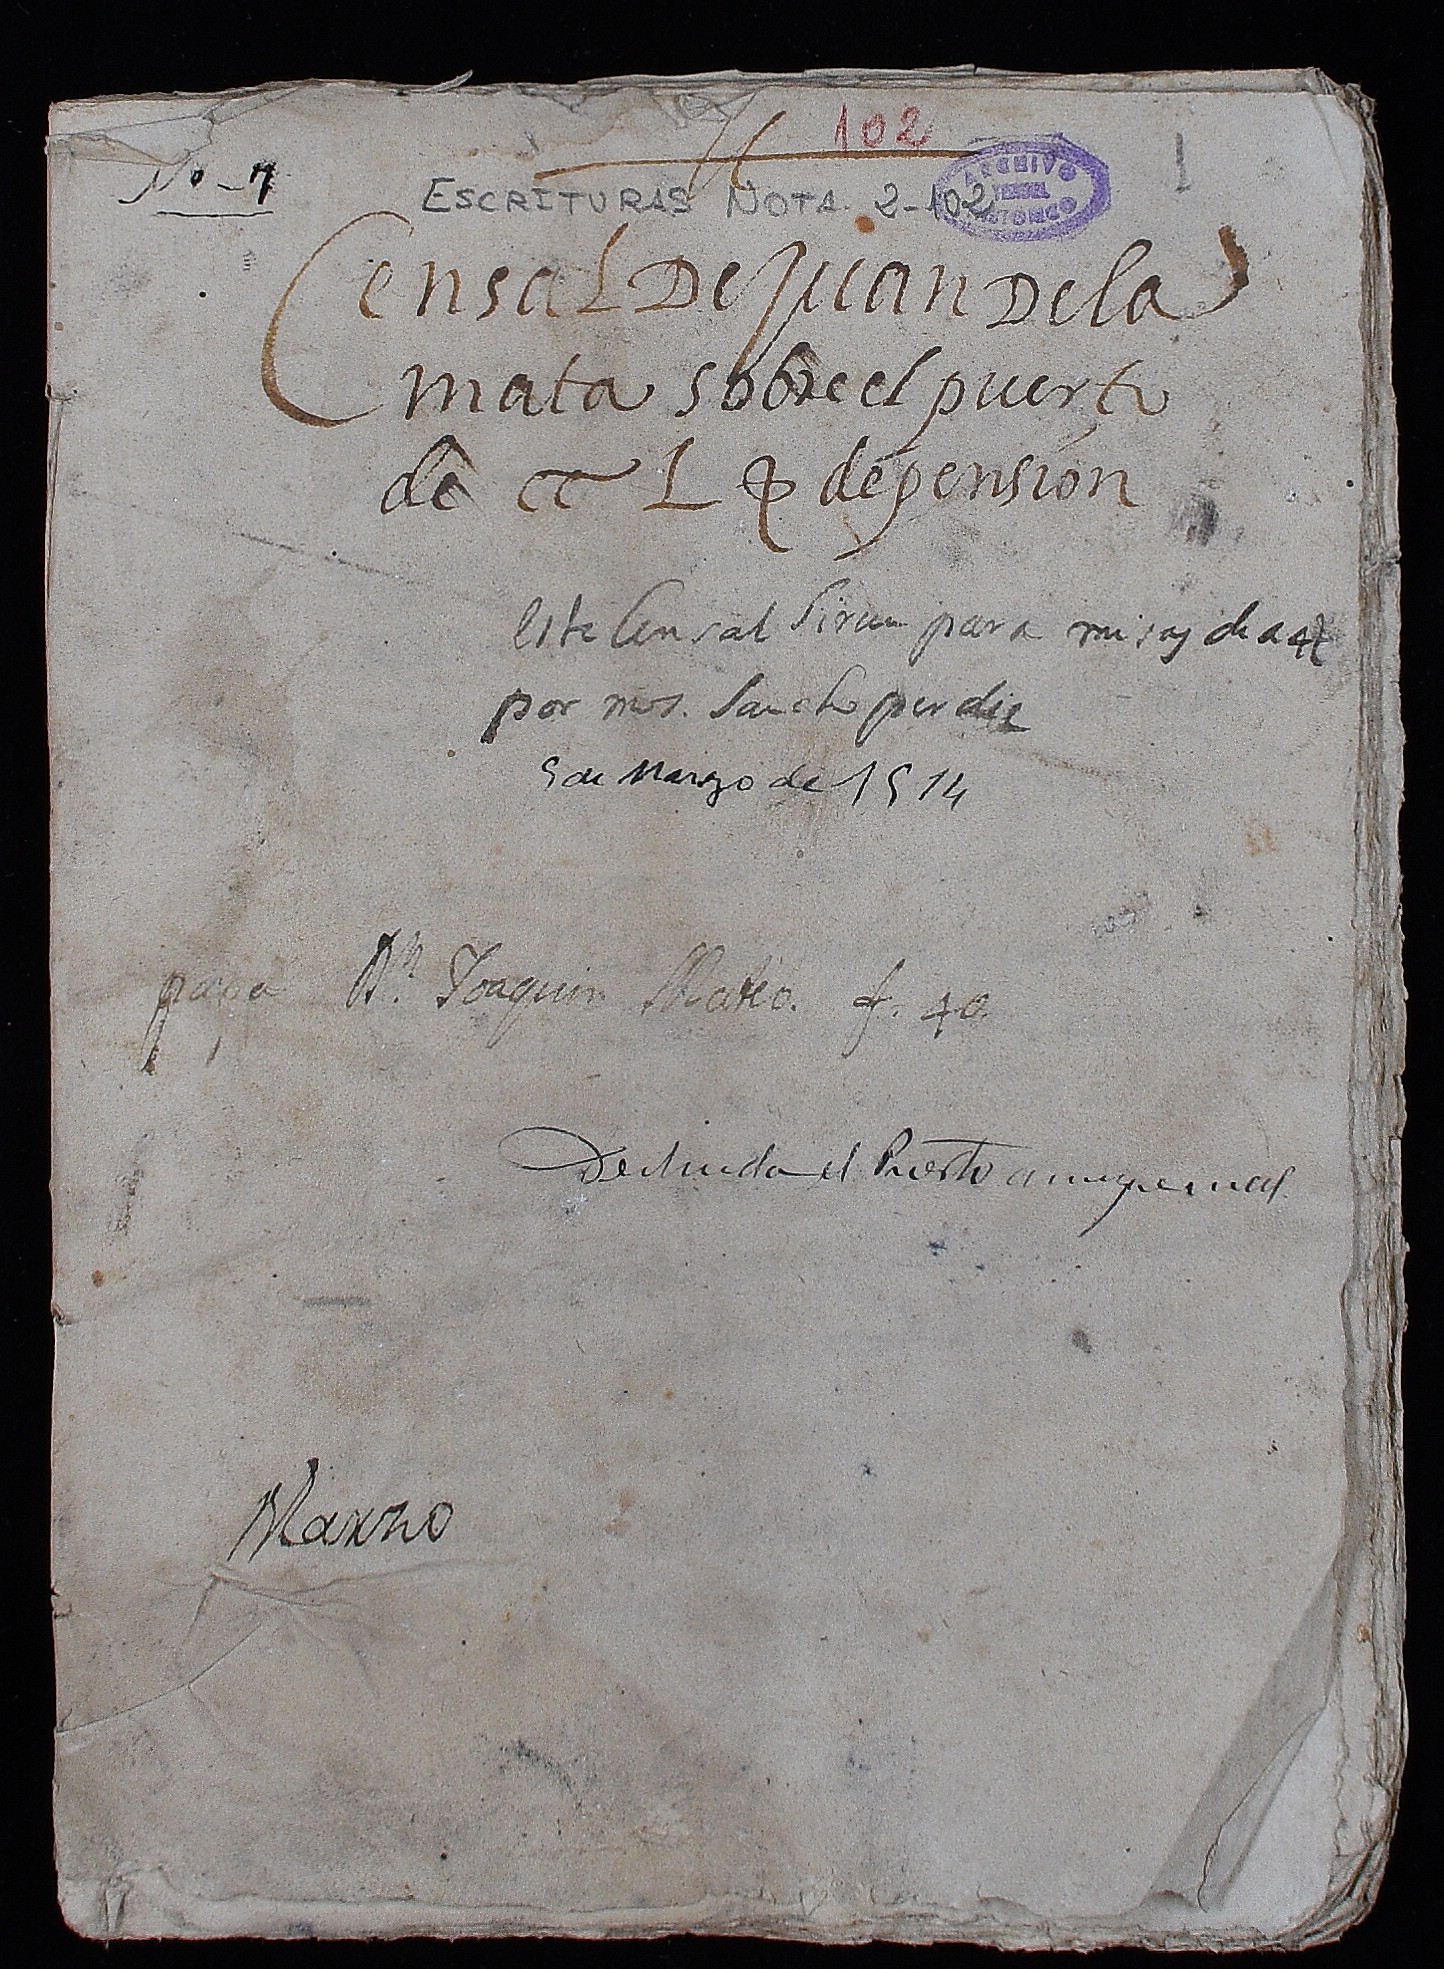 102
No - 7
ESCRITURAS NOTA. 2-102
ARCHIVO
HISTORICO
Censal De Juan De la
mata sobre el puerto
de cc L de pension
Este Censal Sirve para misas de a 4
por mos. Sancho perdiz
5 de Marzo de 1514
paga Dn. Joaquin Mateo. f. 40
Deslinda el Puerto
Marzo